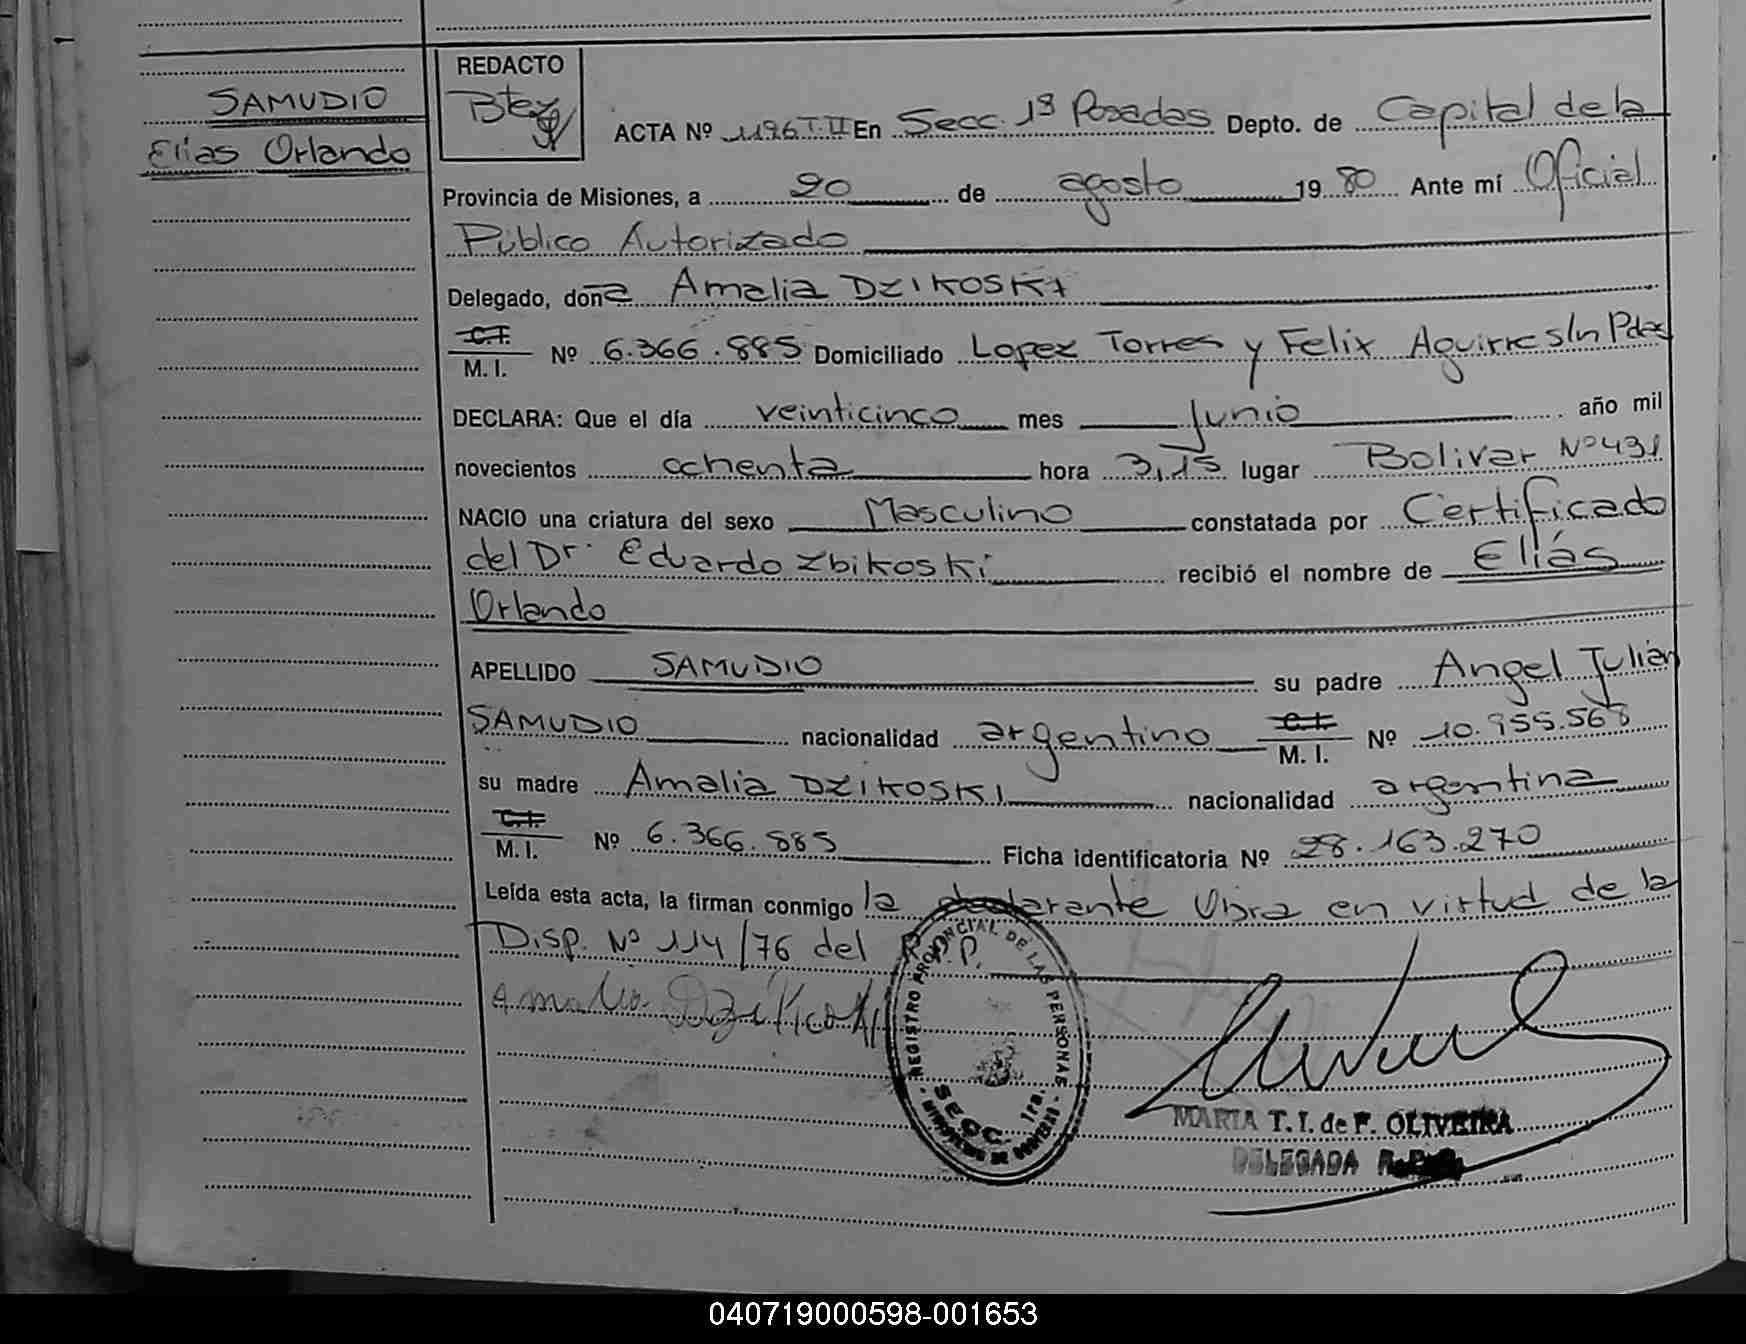 SAMUDIO
Elias Orlando
REDACTO
ACTA Nº 1196 T. II En Secc. 1ª Posadas Depto. de Capital de la
Provincia de Misiones, a 20 de agosto 1980 Ante mí Oficial
Público Autorizado
Delegado, doña Amalia DZIKOSKI
C.I.
M. I. Nº 6.366.885 Domiciliado Lopez Torres y Felix Aguirre s/n Pdas
DECLARA: Que el día veinticinco mes Junio año mil
novecientos ochenta hora 3,15 lugar Bolivar Nº 431
NACIO una criatura del sexo Masculino constatada por Certificado
del Dr. Eduardo Zbikoski recibió el nombre de Elías
Orlando
APELLIDO SAMUDIO su padre Angel Julián
SAMUDIO nacionalidad argentino C.I. M. I. Nº 10.955.568
su madre Amalia DZIKOSKI nacionalidad argentina
C.I.
M. I. Nº 6.366.885 Ficha identificatoria Nº 28.163.270
Leída esta acta, la firman conmigo la declarante Obra en virtud de la
Disp. Nº 114/76 del R.P.P.
Amalia Dzikoski
REGISTRO PROVINCIAL DE LAS PERSONAS
SECC. 1ra.
MARIA T. I. de F. OLIVEIRA
DELEGADA
040719000598-001653